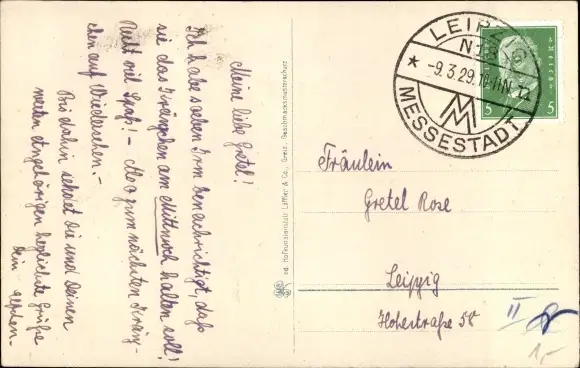 Meine liebe Gretel!
Ich habe soeben Irm benachrichtigt, daß
sie das Kränzchen am Mittwoch halten soll!
Recht viel Spaß! - Also zum nächsten Kränz-
chen auf Wiedersehen. -
Bis dahin seid Du und Deinen
werten Angehörigen herzlichste Grüße
Dein
ed. Hofkunstanstalt Löffler & Co., Greiz. Geschmacksmusterschutz
LEIPZIG
N 18
* -9.3.29.10-11N. 12
MESSESTADT
5 5
Fräulein
Gretel Rose
Leipzig
Hohestraße 58
II
1,-